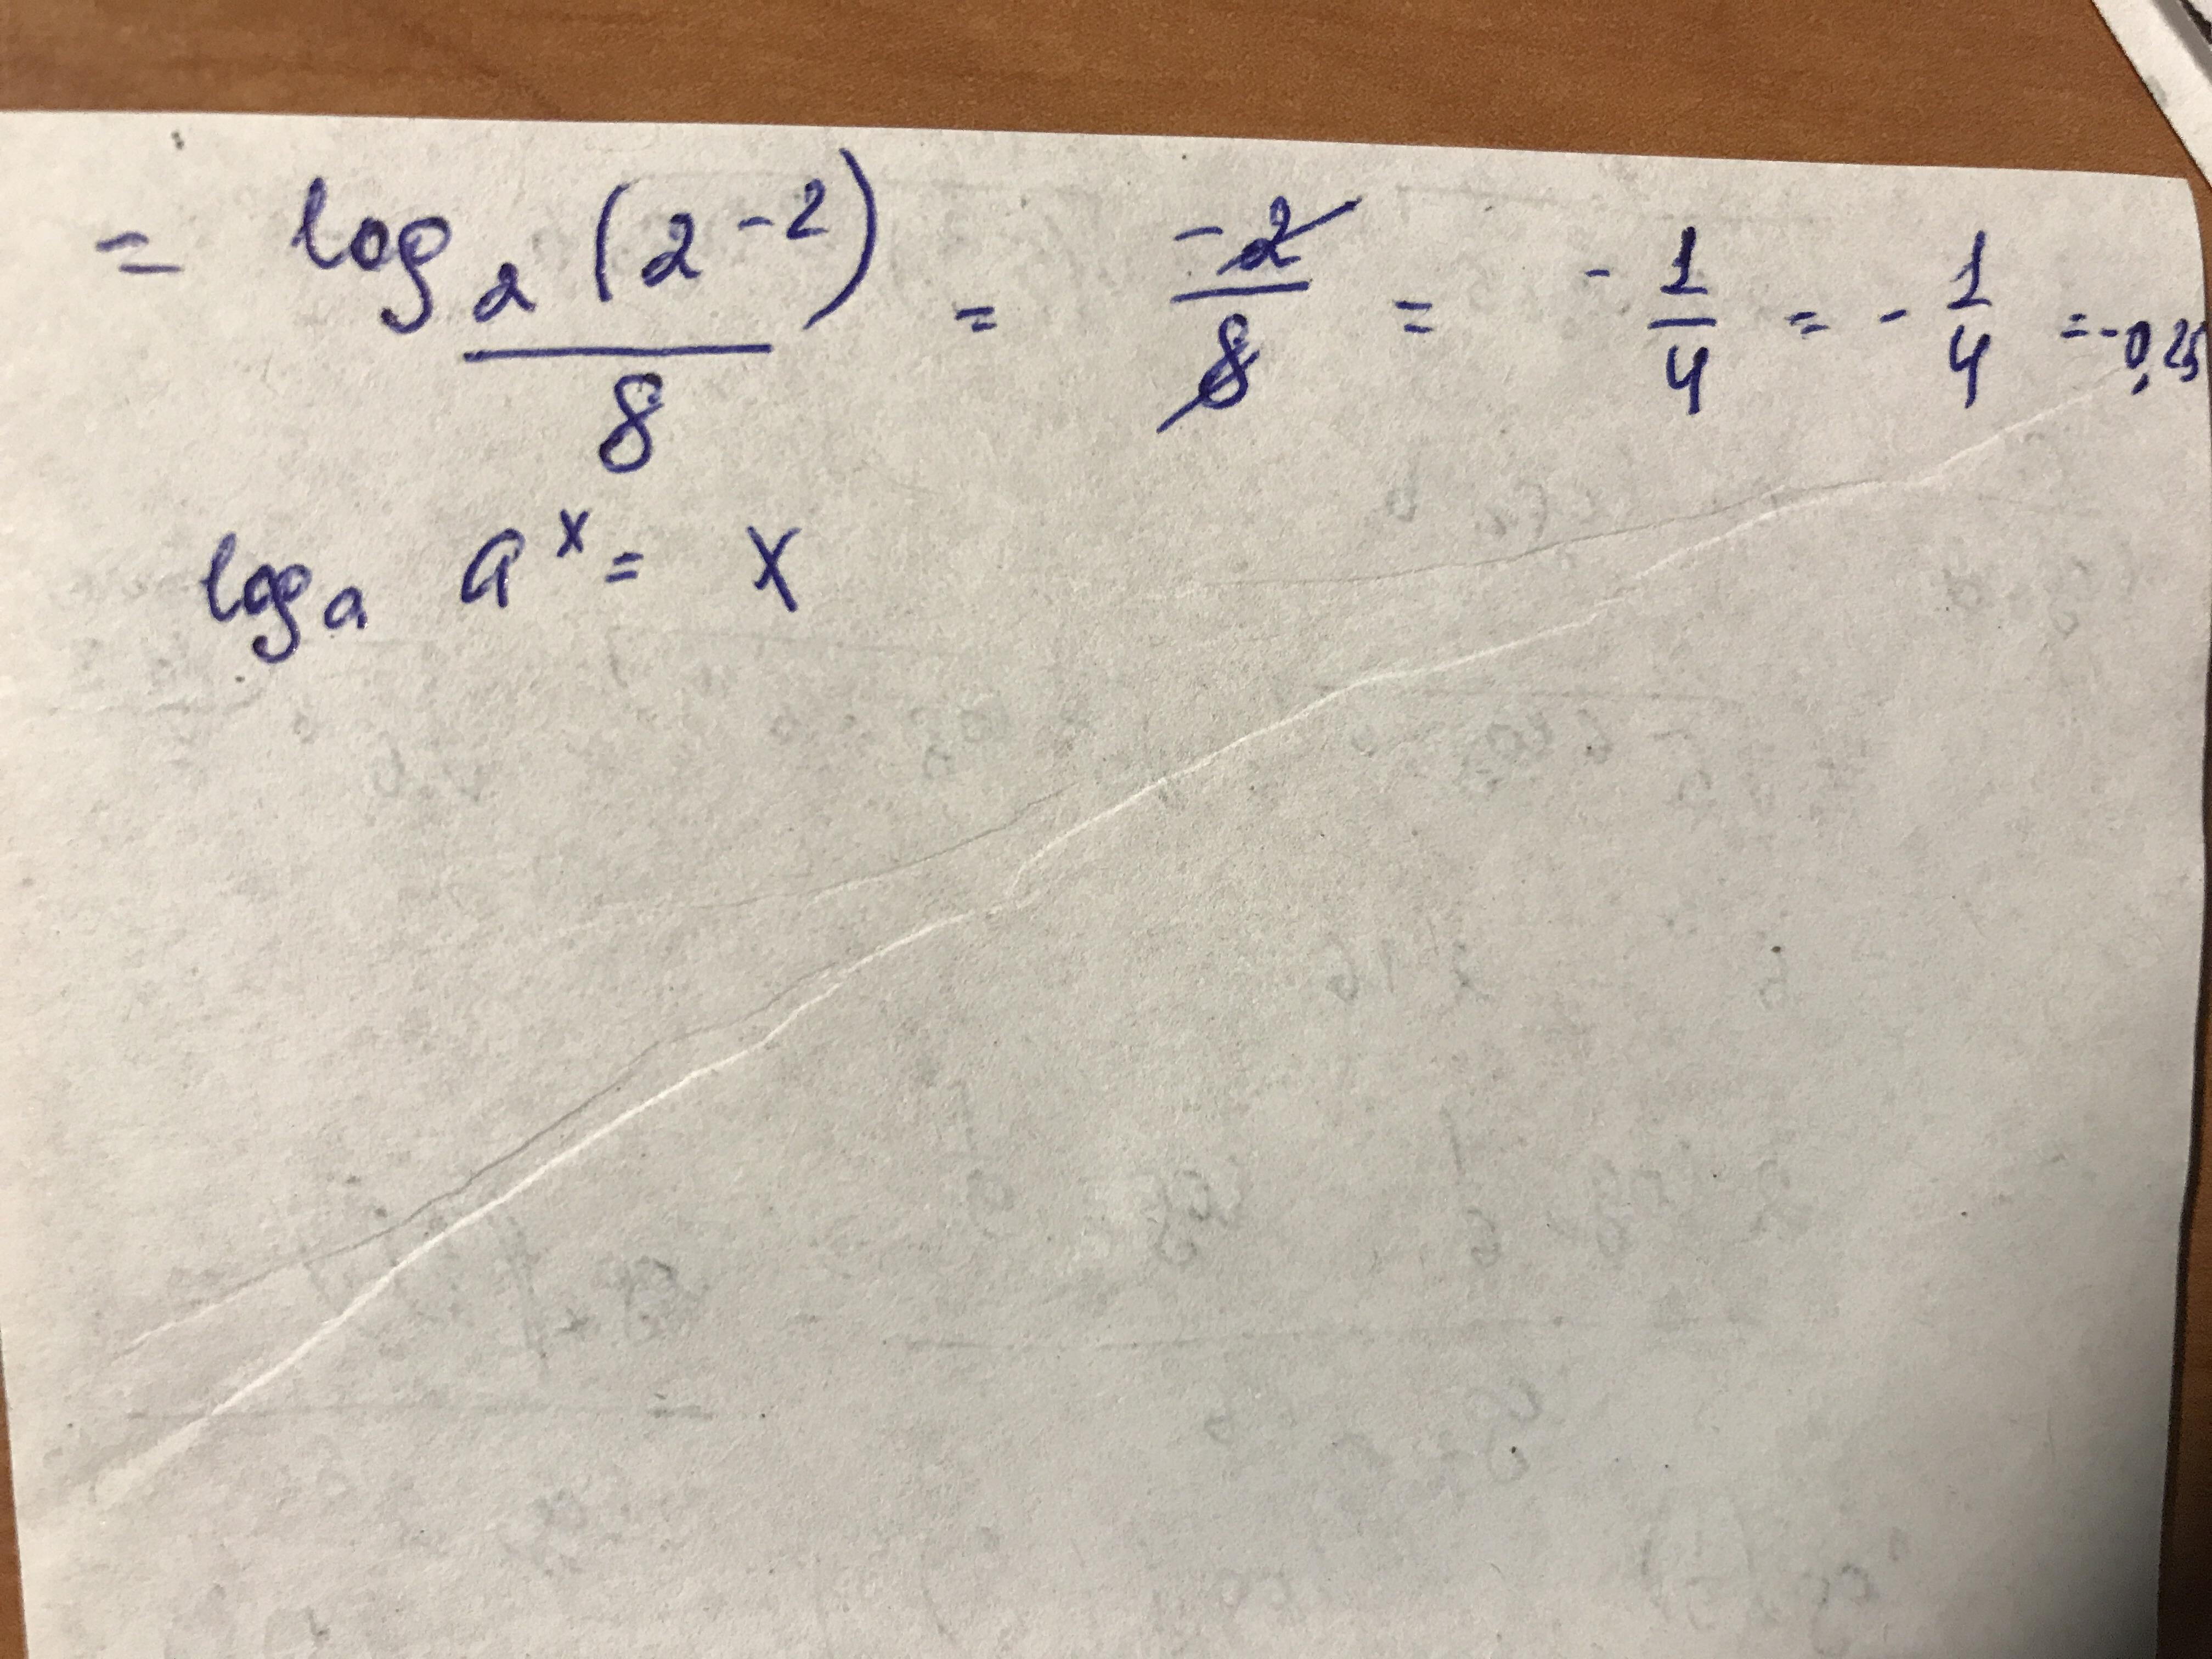 = log₂(2⁻²)/8 = -2/8 = - 1/4 = - 1/4 = -0,25
logₐ aˣ = x